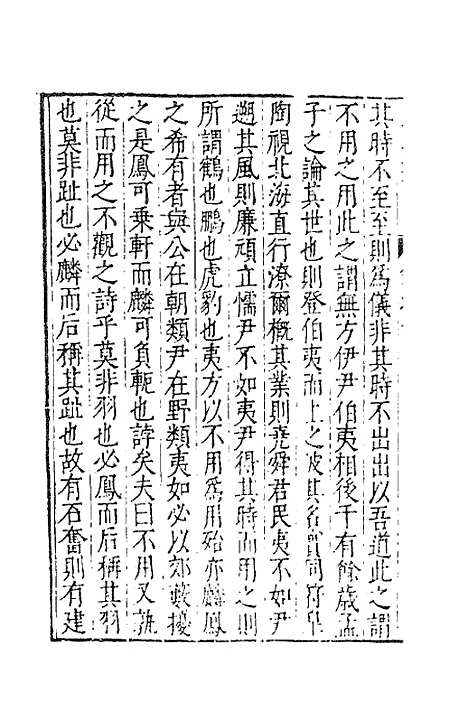 其時不至至則為儀非其時不出出以吾道此之謂
不用之用此之謂無方伊尹伯夷相後千有餘歲孟
子之論其世也則登伯夷而上之彼其名實同符皐
陶視北海直行潦爾概其業則堯舜君民夷不如尹
遡其風則廉頑立懦尹不如夷尹得其時而用之則
所謂鶴也鵬也虎豹也夷方以不用為用殆亦麟鳳
之希有者與公在朝類尹在野類夷如必以郊藪擾
之是鳳可乗軒而麟可負軛也誖矣夫曰不用又孰
從而用之不觀之詩乎莫非羽也必鳳而后稱其羽
也莫非趾也必麟而后稱其趾也故有石奮則有建